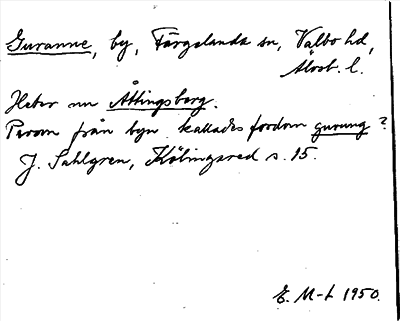 Guranne, by, Färgelanda sn, Valbo hd,
Älvsb. l.
Heter nu Åttingsberg.
Person från byn kallades fordom gurung?
J. Sahlgren, Kölingsred s. 15.
E. M-t 1950.